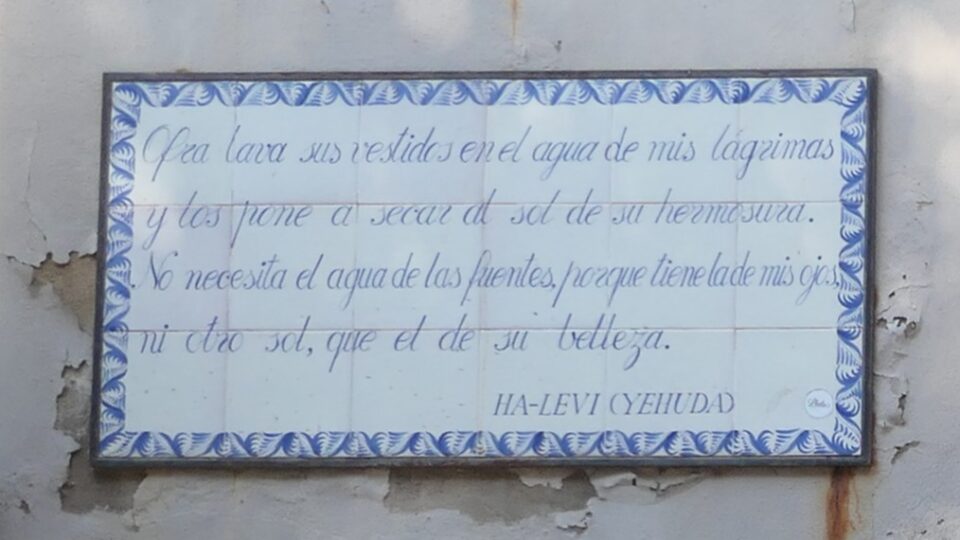 Ofra lava sus vestidos en el agua de mis lágrimas
y los pone a secar al sol de su hermosura.
No necesita el agua de las fuentes, porque tiene la de mis ojos,
ni otro sol, que el de su belleza.
HA-LEVI (YEHUDA)